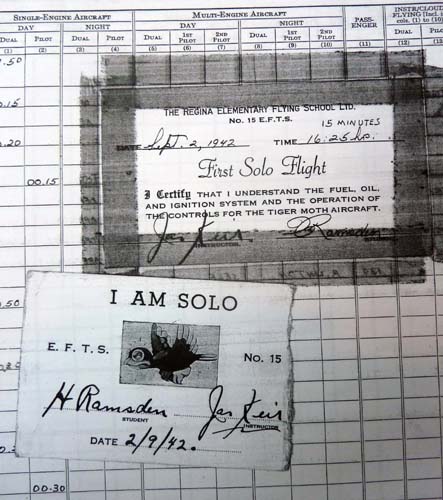 SINGLE-ENGINE AIRCRAFT MULTI-ENGINE AIRCRAFT PASS-ENGER INSTR/CLOUD FLYING [Incl. in cols. (1) to (10)
DAY NIGHT DAY NIGHT
DUAL PILOT DUAL PILOT DUAL 1ST PILOT 2ND PILOT DUAL 1ST PILOT 2ND PILOT DUAL
(1) (2) (3) (4) (5) (6) (7) (8) (9) (10) (11) (12)
.50
THE REGINA ELEMENTARY FLYING SCHOOL LTD.
No. 15 E.F.T.S.
.15
15 MINUTES
DATE Sept. 2, 1942 TIME 16:25 hrs.
.20
First Solo Flight
00.15
I Certify THAT I UNDERSTAND THE FUEL, OIL,
AND IGNITION SYSTEM AND THE OPERATION OF
THE CONTROLS FOR THE TIGER MOTH AIRCRAFT.
Jas Keir H Ramsden
INSTRUCTOR
I AM SOLO
.50
E. F. T. S. No. 15
H Ramsden Jas Keir
STUDENT INSTRUCTOR
DATE 2/9/42.
00.30